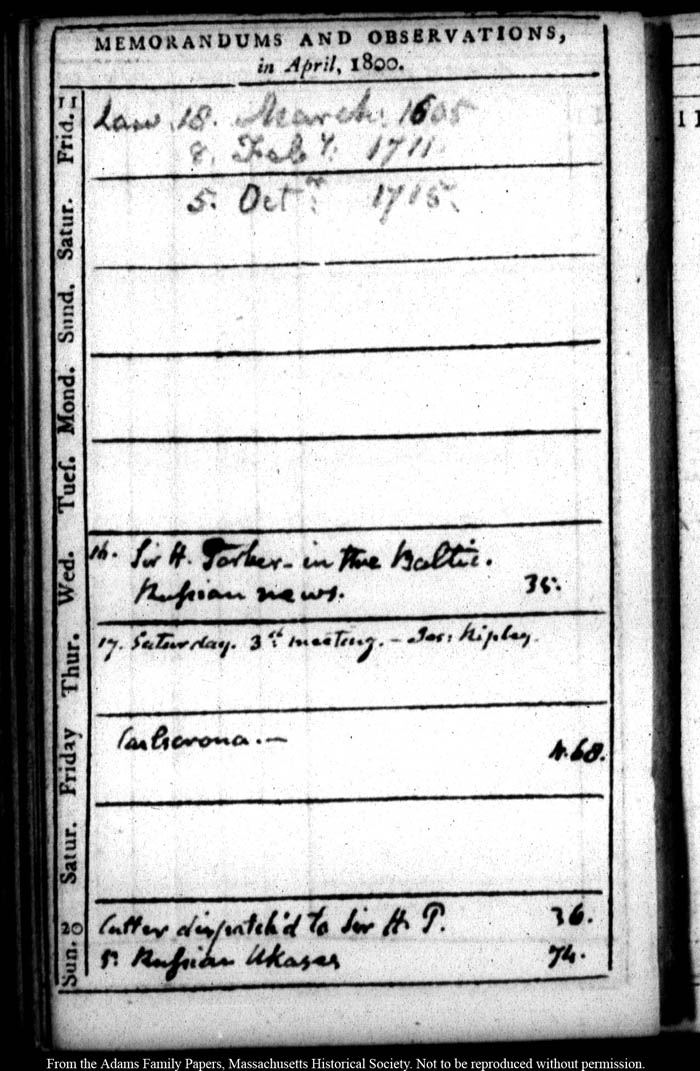 MEMORANDUMS AND OBSERVATIONS,
in April, 1800.
11
Frid.
Law 18. March 1605
8. Feby. 1711.
Satur.
5. Octr. 1715.
Sund.
Mond.
Tues.
Wed.
16. Sir H. Parker - in the Baltic.
Russian news. 35.
Thur.
17. Saturday. 3d. meeting. - Jas: Ripley.
Friday
Carlscrona. - N. 68.
Satur.
20
Sun.
Cutter dispatch'd to Sir H. P. 36.
5. Russian Ukases 74.
11
From the Adams Family Papers, Massachusetts Historical Society. Not to be reproduced without permission.